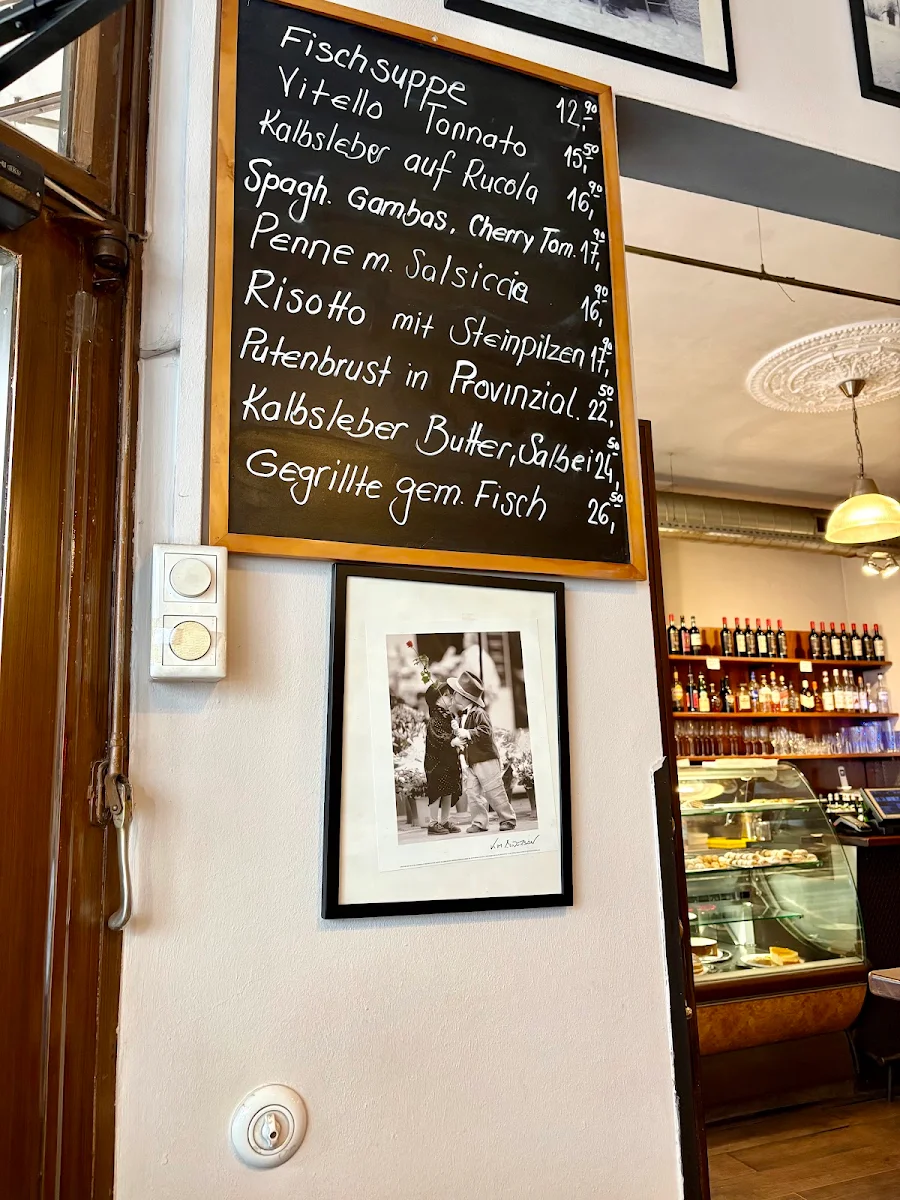 Fischsuppe 12,90
Vitello Tonnato 15,50
Kalbsleber auf Rucola 16,90
Spagh. Gambas, Cherry Tom. 17,90
Penne m. Salsiccia 16,90
Risotto mit Steinpilzen 17,90
Putenbrust in Provinzial. 22,50
Kalbsleber Butter, Salbei 24,50
Gegrillte gem. Fisch 26,50